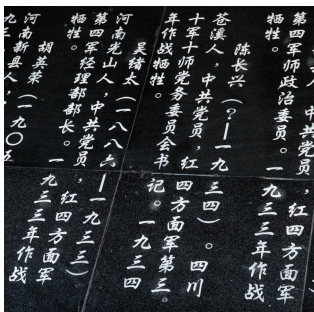 ，红四方面军
第四军师政治委员。一九三三年作战
牺牲。
陈长兴（？—一九三四）。四川
苍溪人，中共党员，红四方面军第三
十军十师党务委员会书记。一九三四
年作战牺牲。
吴绪太（一八八六—一九三三）
河南光山人，中共党员，红四方面军
第四军经理部部长。一九三三年作战
牺牲。
胡英荣（一九〇五
河南新县人，